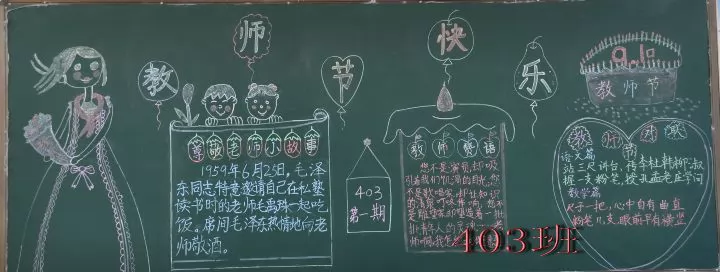 教师节快乐
9.10
教师节
尊敬老师小故事
1959年6月25日,毛泽
东同志特意邀请自己在私塾
读书时的老师毛禹珠一起吃
饭。席间毛泽东热情地向老
师敬酒。
403
第一期
教师赞语
您不是演员,却吸
引着我们饥渴的目光,您
不是歌唱家,却让知识
的清泉叮咚作响,您不
是雕塑家,却塑造着一批
批青年人的灵魂
师啊,我怎
语文篇
站三尺讲台,得李杜韩柳淑
握一支粉笔,授孔孟老庄学问
数学篇
尺子一把,心中自有曲直
粉笔几支,眼前平有横竖
403班